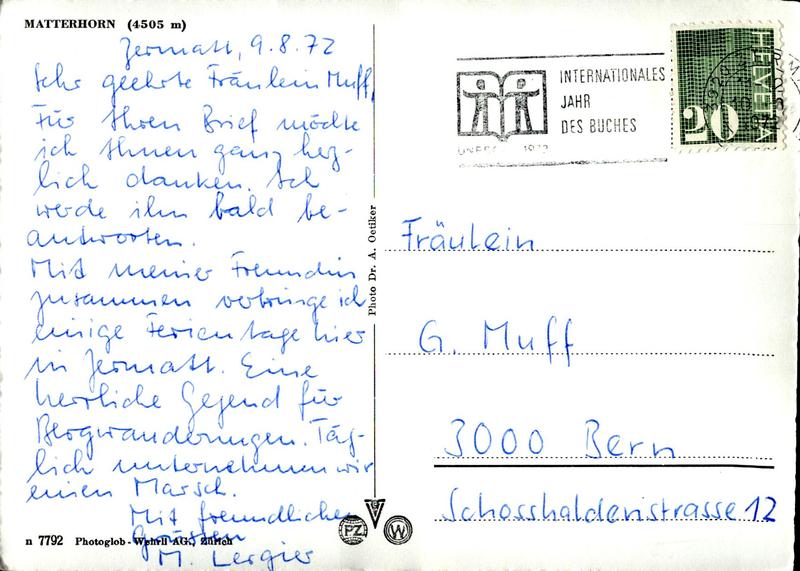 MATTERHORN (4505 m)
Zermatt, 9.8.72
Sehr geehrte Fräulein Muff,
Für Ihren Brief möchte
ich Ihnen ganz herz-
lich danken. Ich
werde ihn bald be-
antworten.
Mit meiner Freundin
zusammen verbringe ich
einige Ferientage hier
in Zermatt. Eine
herrliche Gegend für
Bergwanderungen. Täg-
lich unternehmen wir
einen Marsch.
Mit freundlichen
Grüssen
M. Lergier
n 7792 Photoglob-Wehrli AG., Zürich
Photo Dr. A. Oetiker
PZ
W
INTERNATIONALES
JAHR
DES BUCHES
UNESCO 1972
HELVETIA
20
Fräulein
G. Muff
3000 Bern
Schosshaldenstrasse 12